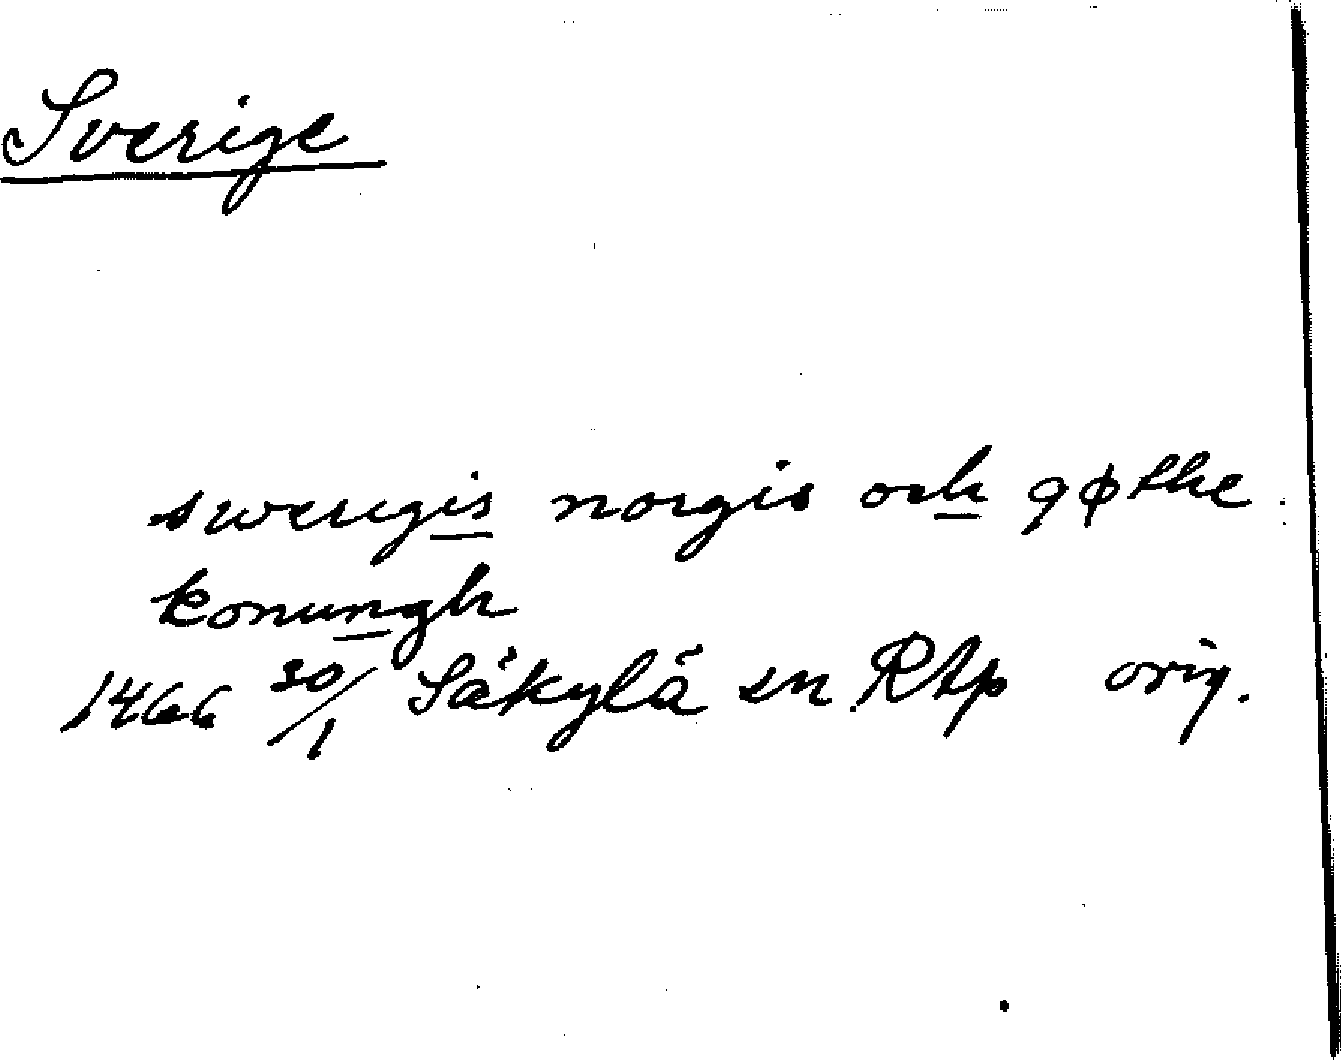 Sverige
sweregis norgis och gøthe
konungh
1466 30/1 Säkylä sn RAp orig.